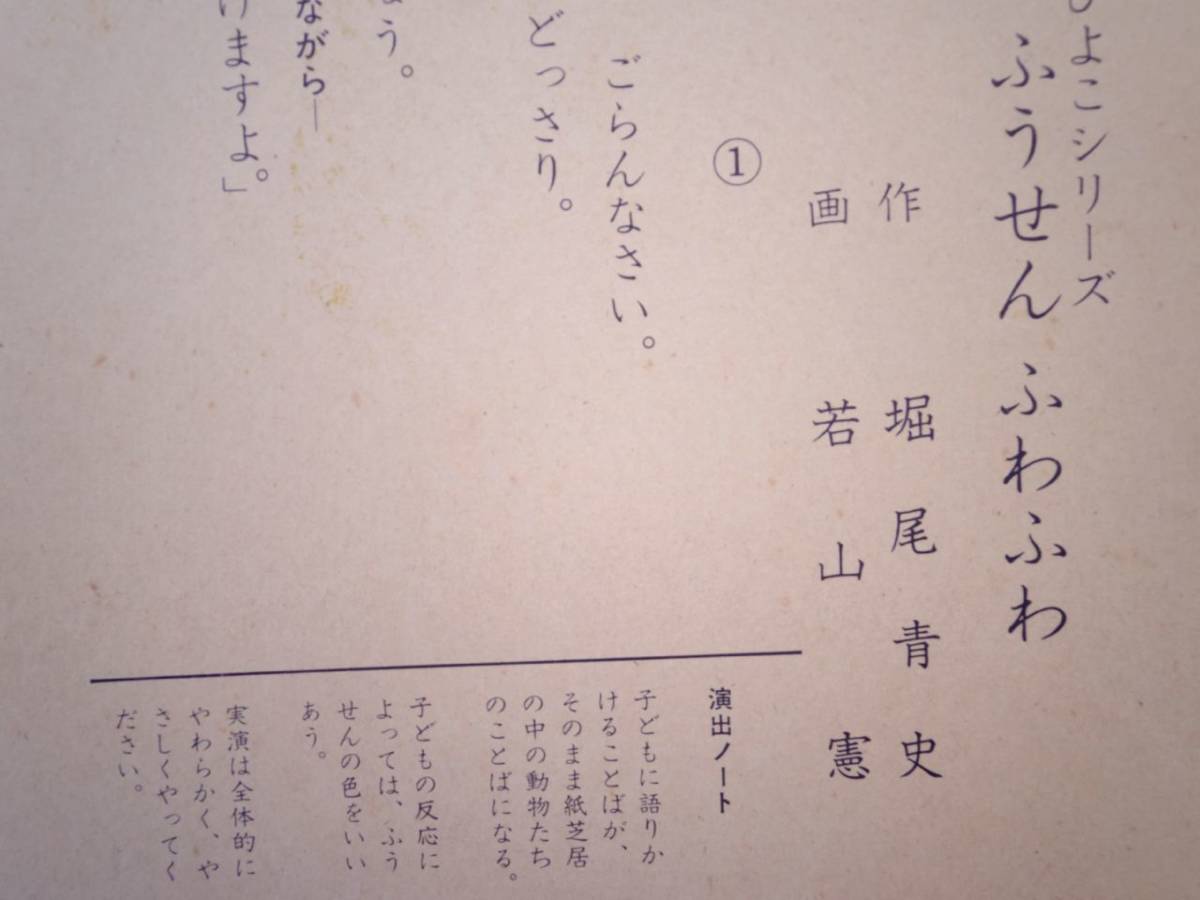 ひよこシリーズ
ふうせん ふわふわ
作 堀尾青史
画 若山憲
①
ごらんなさい。
どっさり。
う。
ながら―
けますよ。」
演出ノート
子どもに語りか
けることばが、
そのまま紙芝居
の中の動物たち
のことばになる。
子どもの反応に
よっては、ふう
せんの色をいい
あう。
実演は全体的に
やわらかく、や
さしくやってく
ださい。